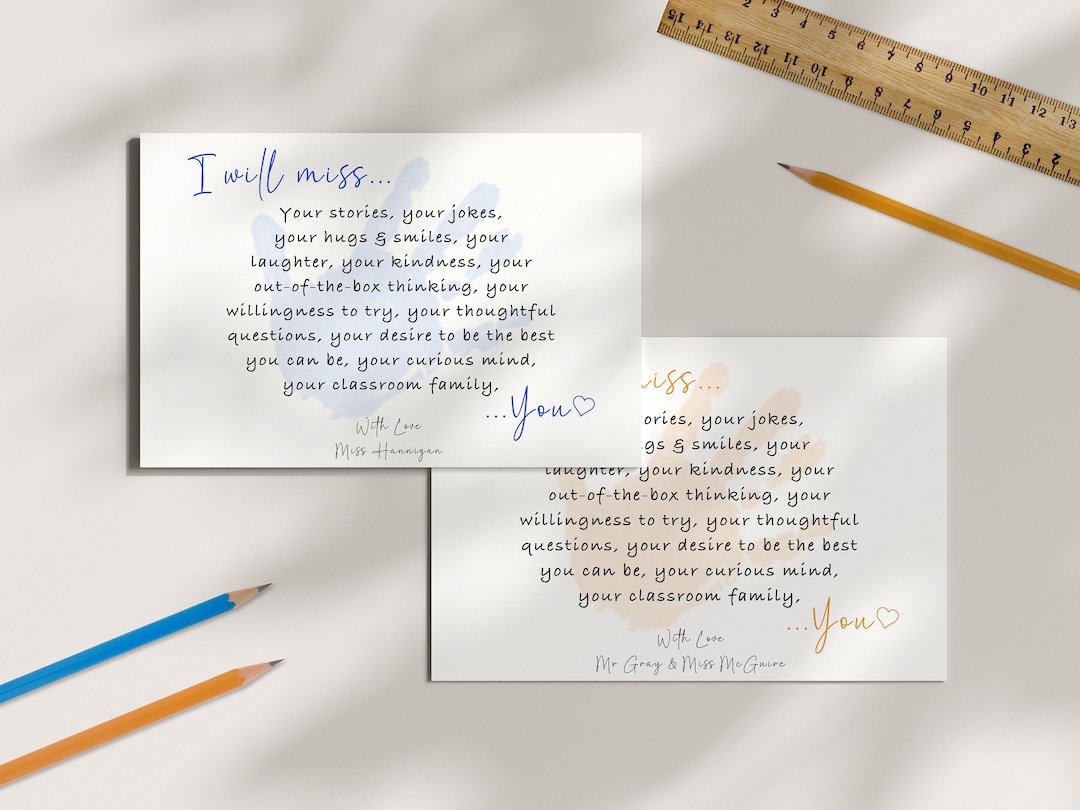 I will miss...
Your stories, your jokes,
your hugs & smiles, your
laughter, your kindness, your
out-of-the-box thinking, your
willingness to try, your thoughtful
questions, your desire to be the best
you can be, your curious mind,
your classroom family,
...You♡
With Love
Miss Hannigan
iss...
tories, your jokes,
gs & smiles, your
laughter, your kindness, your
out-of-the-box thinking, your
willingness to try, your thoughtful
questions, your desire to be the best
you can be, your curious mind,
your classroom family,
...You♡
With Love
Mr Gray & Miss McGuire
2 3 4 5 6 7 8 9 10 11 12 13
15 14 13 12 11 10 9 8 7 6 5 4 3 2